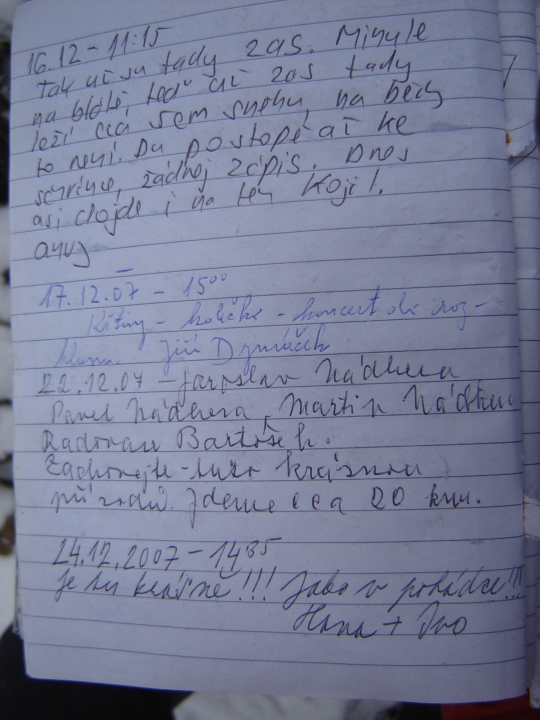 16.12 - 11:15
Tak už su tady zas. Minule
na blátě, teď už zas tady
leží cca 5cm sněhu, na běžky
to není. Du postopě až ke
scvrlině, žádnej zápis. Dnes
asi dojde i na ten Koji!.
ahoj
17.12.07 - 15⁰⁰
Křtiny - kolečko - koncert
Jiří Dymáček
22.12.07 - Jaroslav Nádhera
Pavel Nádhera, Martin Nádhera
Radovan Bartošek.
Zachovejte tuto krásnou
přírodu. Jdeme cca 20 km.
24.12.2007 - 14³⁵
Je tu krásně!!! Jako v pohádce!!!
Hana + Ivo